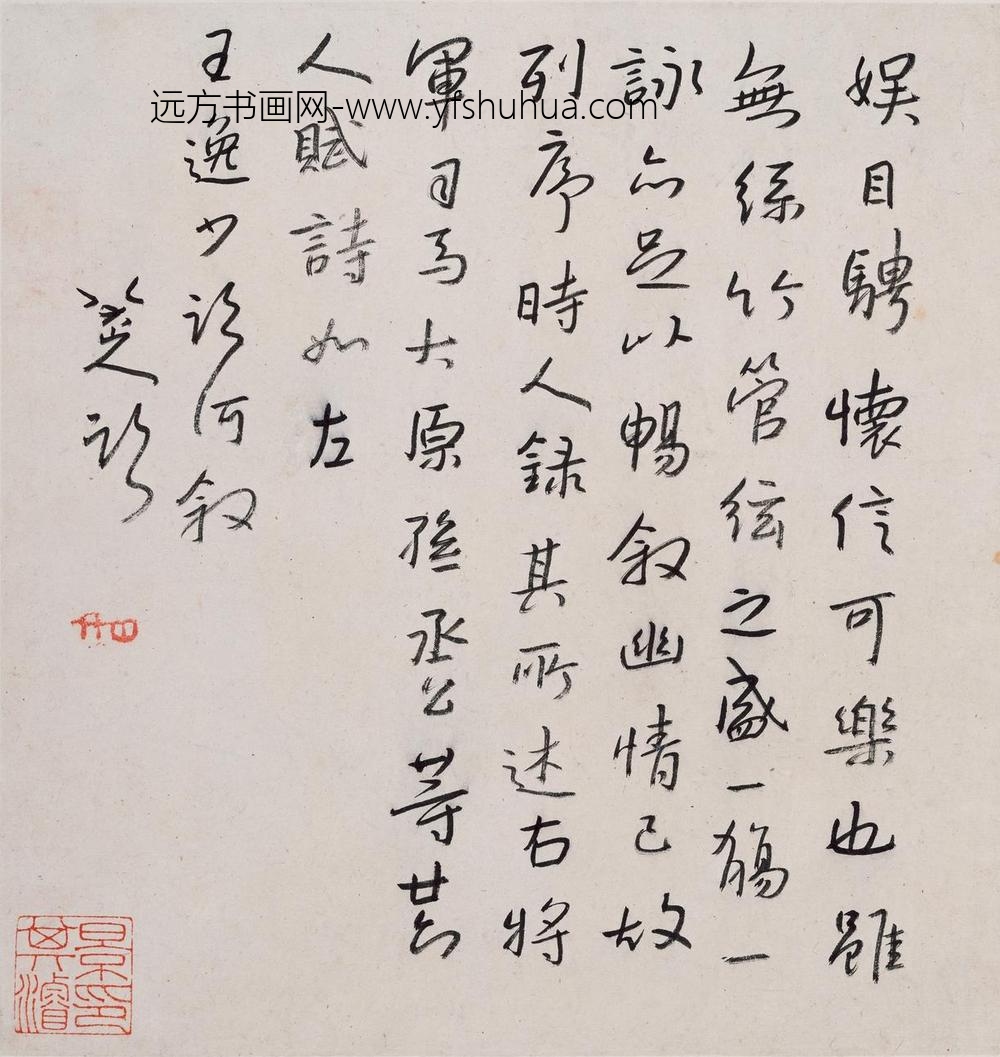 娱目騁懷信可樂也雖
無絲竹管絃之盛一觴一
詠亦足以暢叙幽情已故
列序時人録其所述右將
軍司馬大原孫丞公等廿六
人賦詩如左
王逸少臨河叙
八大山人臨
景其濬印
远方书画网-www.yfshuhua.com